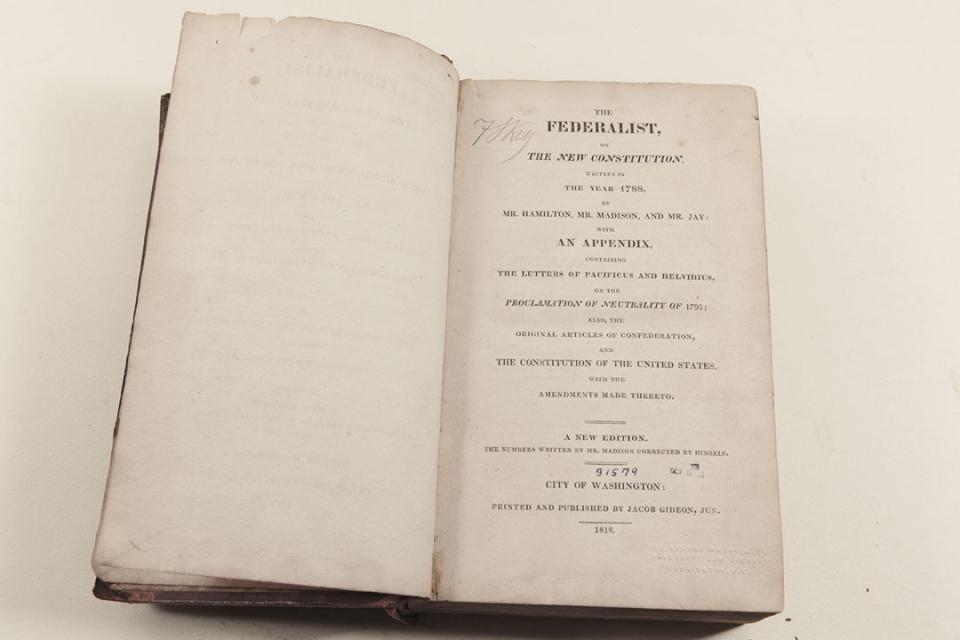 THE
FEDERALIST,
ON
THE NEW CONSTITUTION,
WRITTEN IN
THE YEAR 1788,
BY
MR. HAMILTON, MR. MADISON, AND MR. JAY:
WITH
AN APPENDIX,
CONTAINING
THE LETTERS OF PACIFICUS AND HELVIDIUS,
ON THE
PROCLAMATION OF NEUTRALITY OF 1793;
ALSO, THE
ORIGINAL ARTICLES OF CONFEDERATION,
AND
THE CONSTITUTION OF THE UNITED STATES,
WITH THE
AMENDMENTS MADE THERETO.
A NEW EDITION.
THE NUMBERS WRITTEN BY MR. MADISON CORRECTED BY HIMSELF.
91579
CITY OF WASHINGTON:
PRINTED AND PUBLISHED BY JACOB GIDEON, JUN.
1818.
F S Key